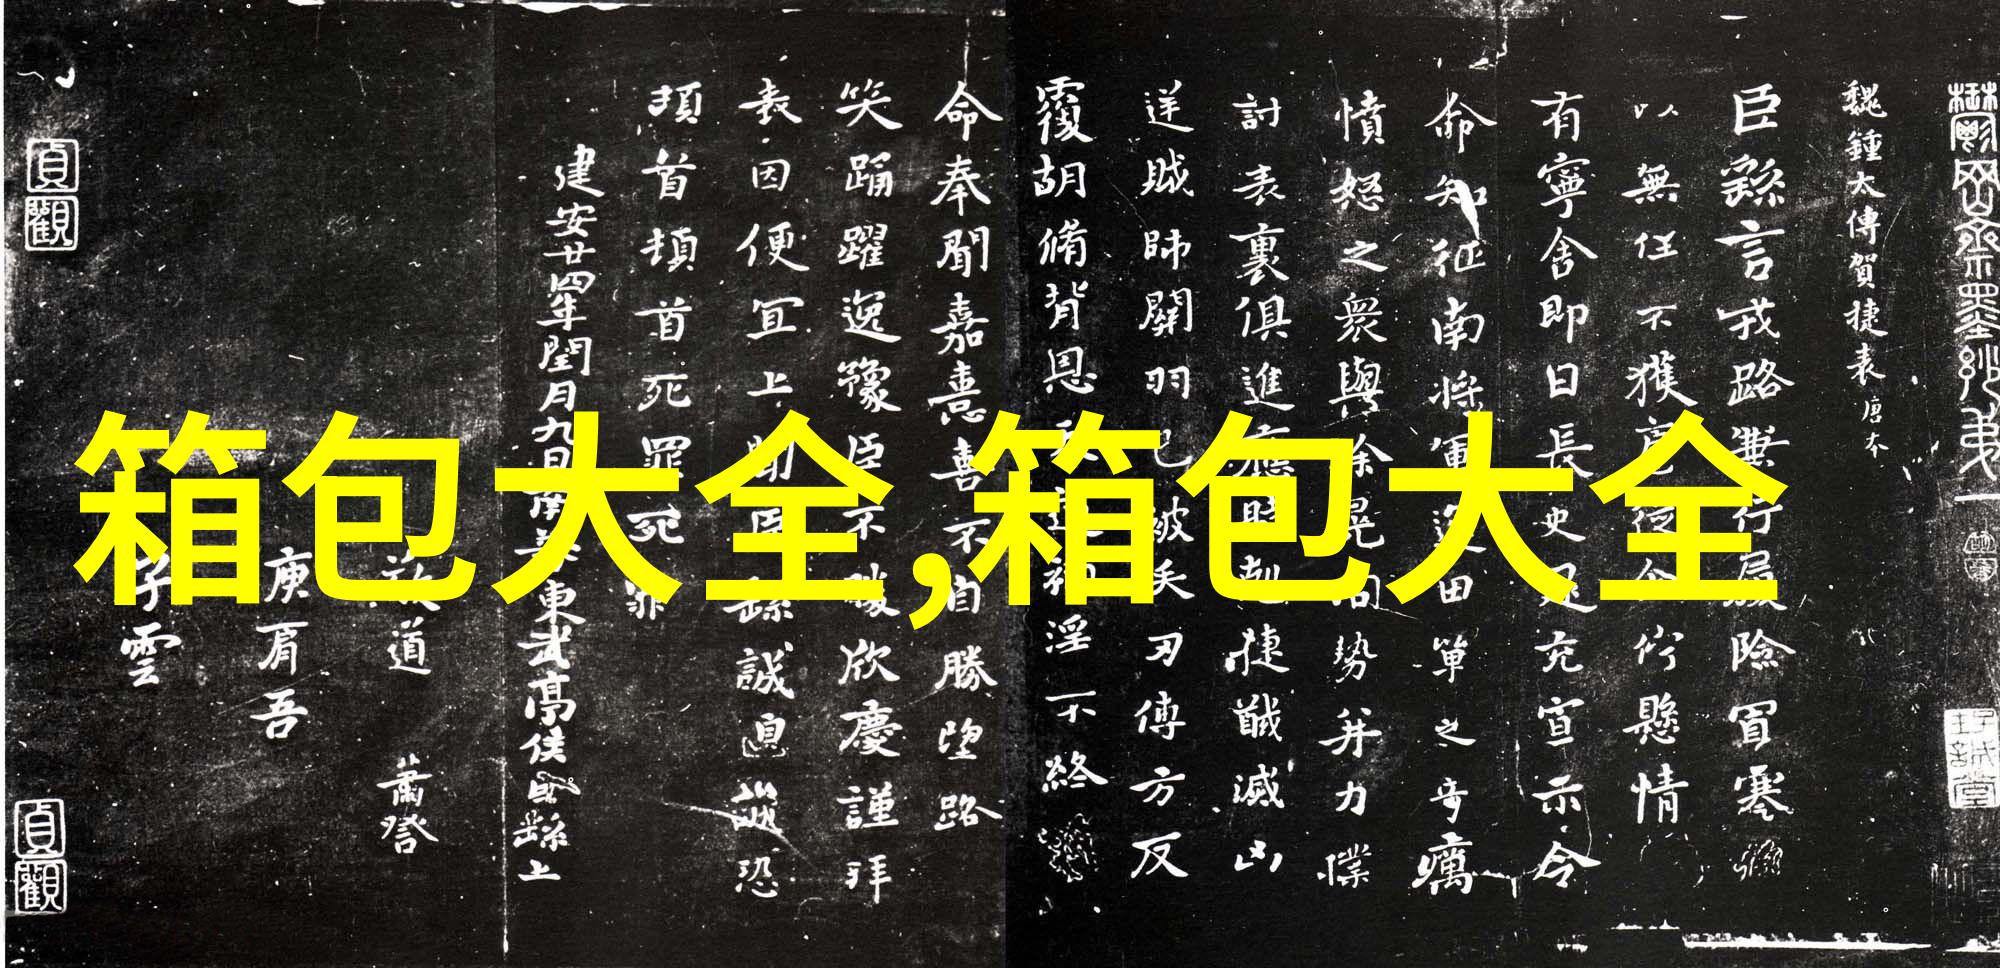 魏鍾太傅賀捷表 唐本
臣繇言戎路兼行履險冒寒
以無任不獲扈從企佇懸情
有寧舍即日長史充宣示令
命知征南將軍運田單之奇厲
憤怒之衆與徐晃同勢并力
討表裏俱進應時剋捷馘滅凶
逆賊帥關羽已被矢刃傅方反
覆胡脩背恩天道禍淫不終
命奉聞嘉憙喜不自勝望路
笑踊躍逸豫臣不勝欣慶謹拜
表因便宜上聞臣繇誠惶誠恐
頓首頓首死罪死罪
建安廿四年閏月九日南蕃東武亭侯臣繇上
道
萧
庚肩吾
子雲
貞觀
貞觀
箱包大全,箱包大全